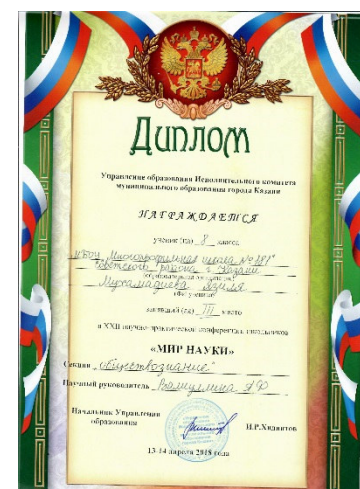 Диплом
Управление образования Исполнительного комитета
муниципального образования города Казани
НАГРАЖДАЕТСЯ
ученик (ца) 8 класса
МБОУ "Многопрофильная школа №181"
Советского района г. Казани
Мухамадиева Язиля
занявший (ая) III место
в XXII научно-практической конференции школьников
«МИР НАУКИ»
Секция "Обществознание"
Научный руководитель
Начальник Управления
образования И.Р.Хадиятов
13-14 апреля 2018 года